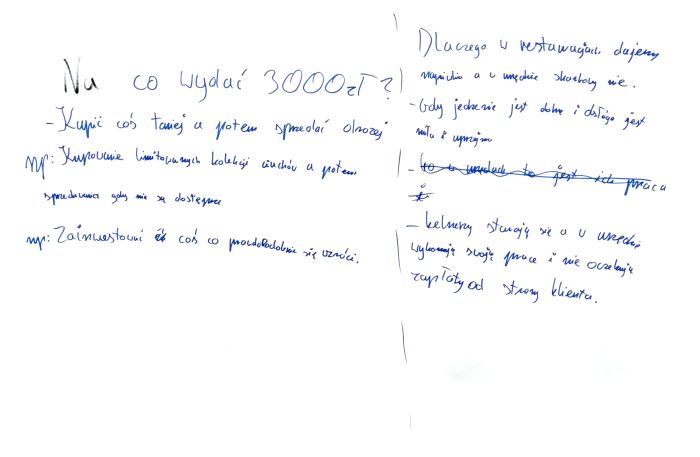 Na co wydać 3000zł?
- Kupić coś taniej a potem sprzedać drożej
np: Kupowanie limitowanych kolekcji ciuchów a potem
sprzedawanie gdy nie są dostępne
np: Zainwestować coś co prawdopodobnie się wzróci.
Dlaczego w restauracjach dajemy
napiwki a w urzędzie skarbowy nie.
- Gdy jedzenie jest dobre i obsługa jest
miła i uprzejma
- to w urzędach to jest ich praca
- kelnerzy starają się a w urzędzie
wykonują swoją prace i nie oczekują
zapłaty od strony klienta.